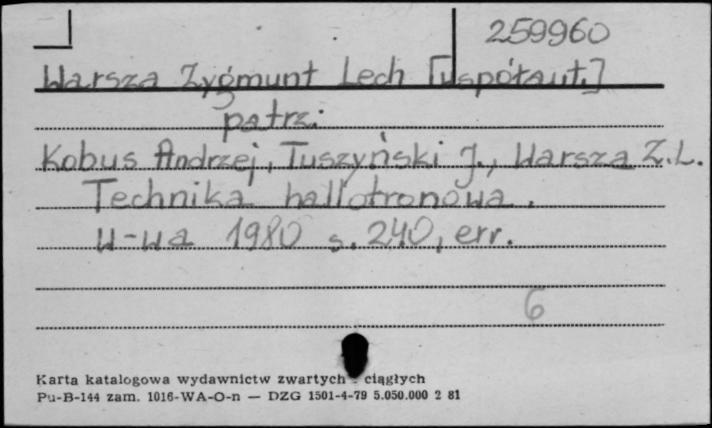 259960
Warsza Zygmunt Lech [współaut.]
patrz:
Kobus Andrzej, Tuszyński J., Warsza Z.L.
Technika hallotronowa.
W-wa 1980 s. 240, err.
6
Karta katalogowa wydawnictw zwartych - ciągłych
Pu-B-144 zam. 1016-WA-O-n — DZG 1501-4-79 5.050.000 2 81